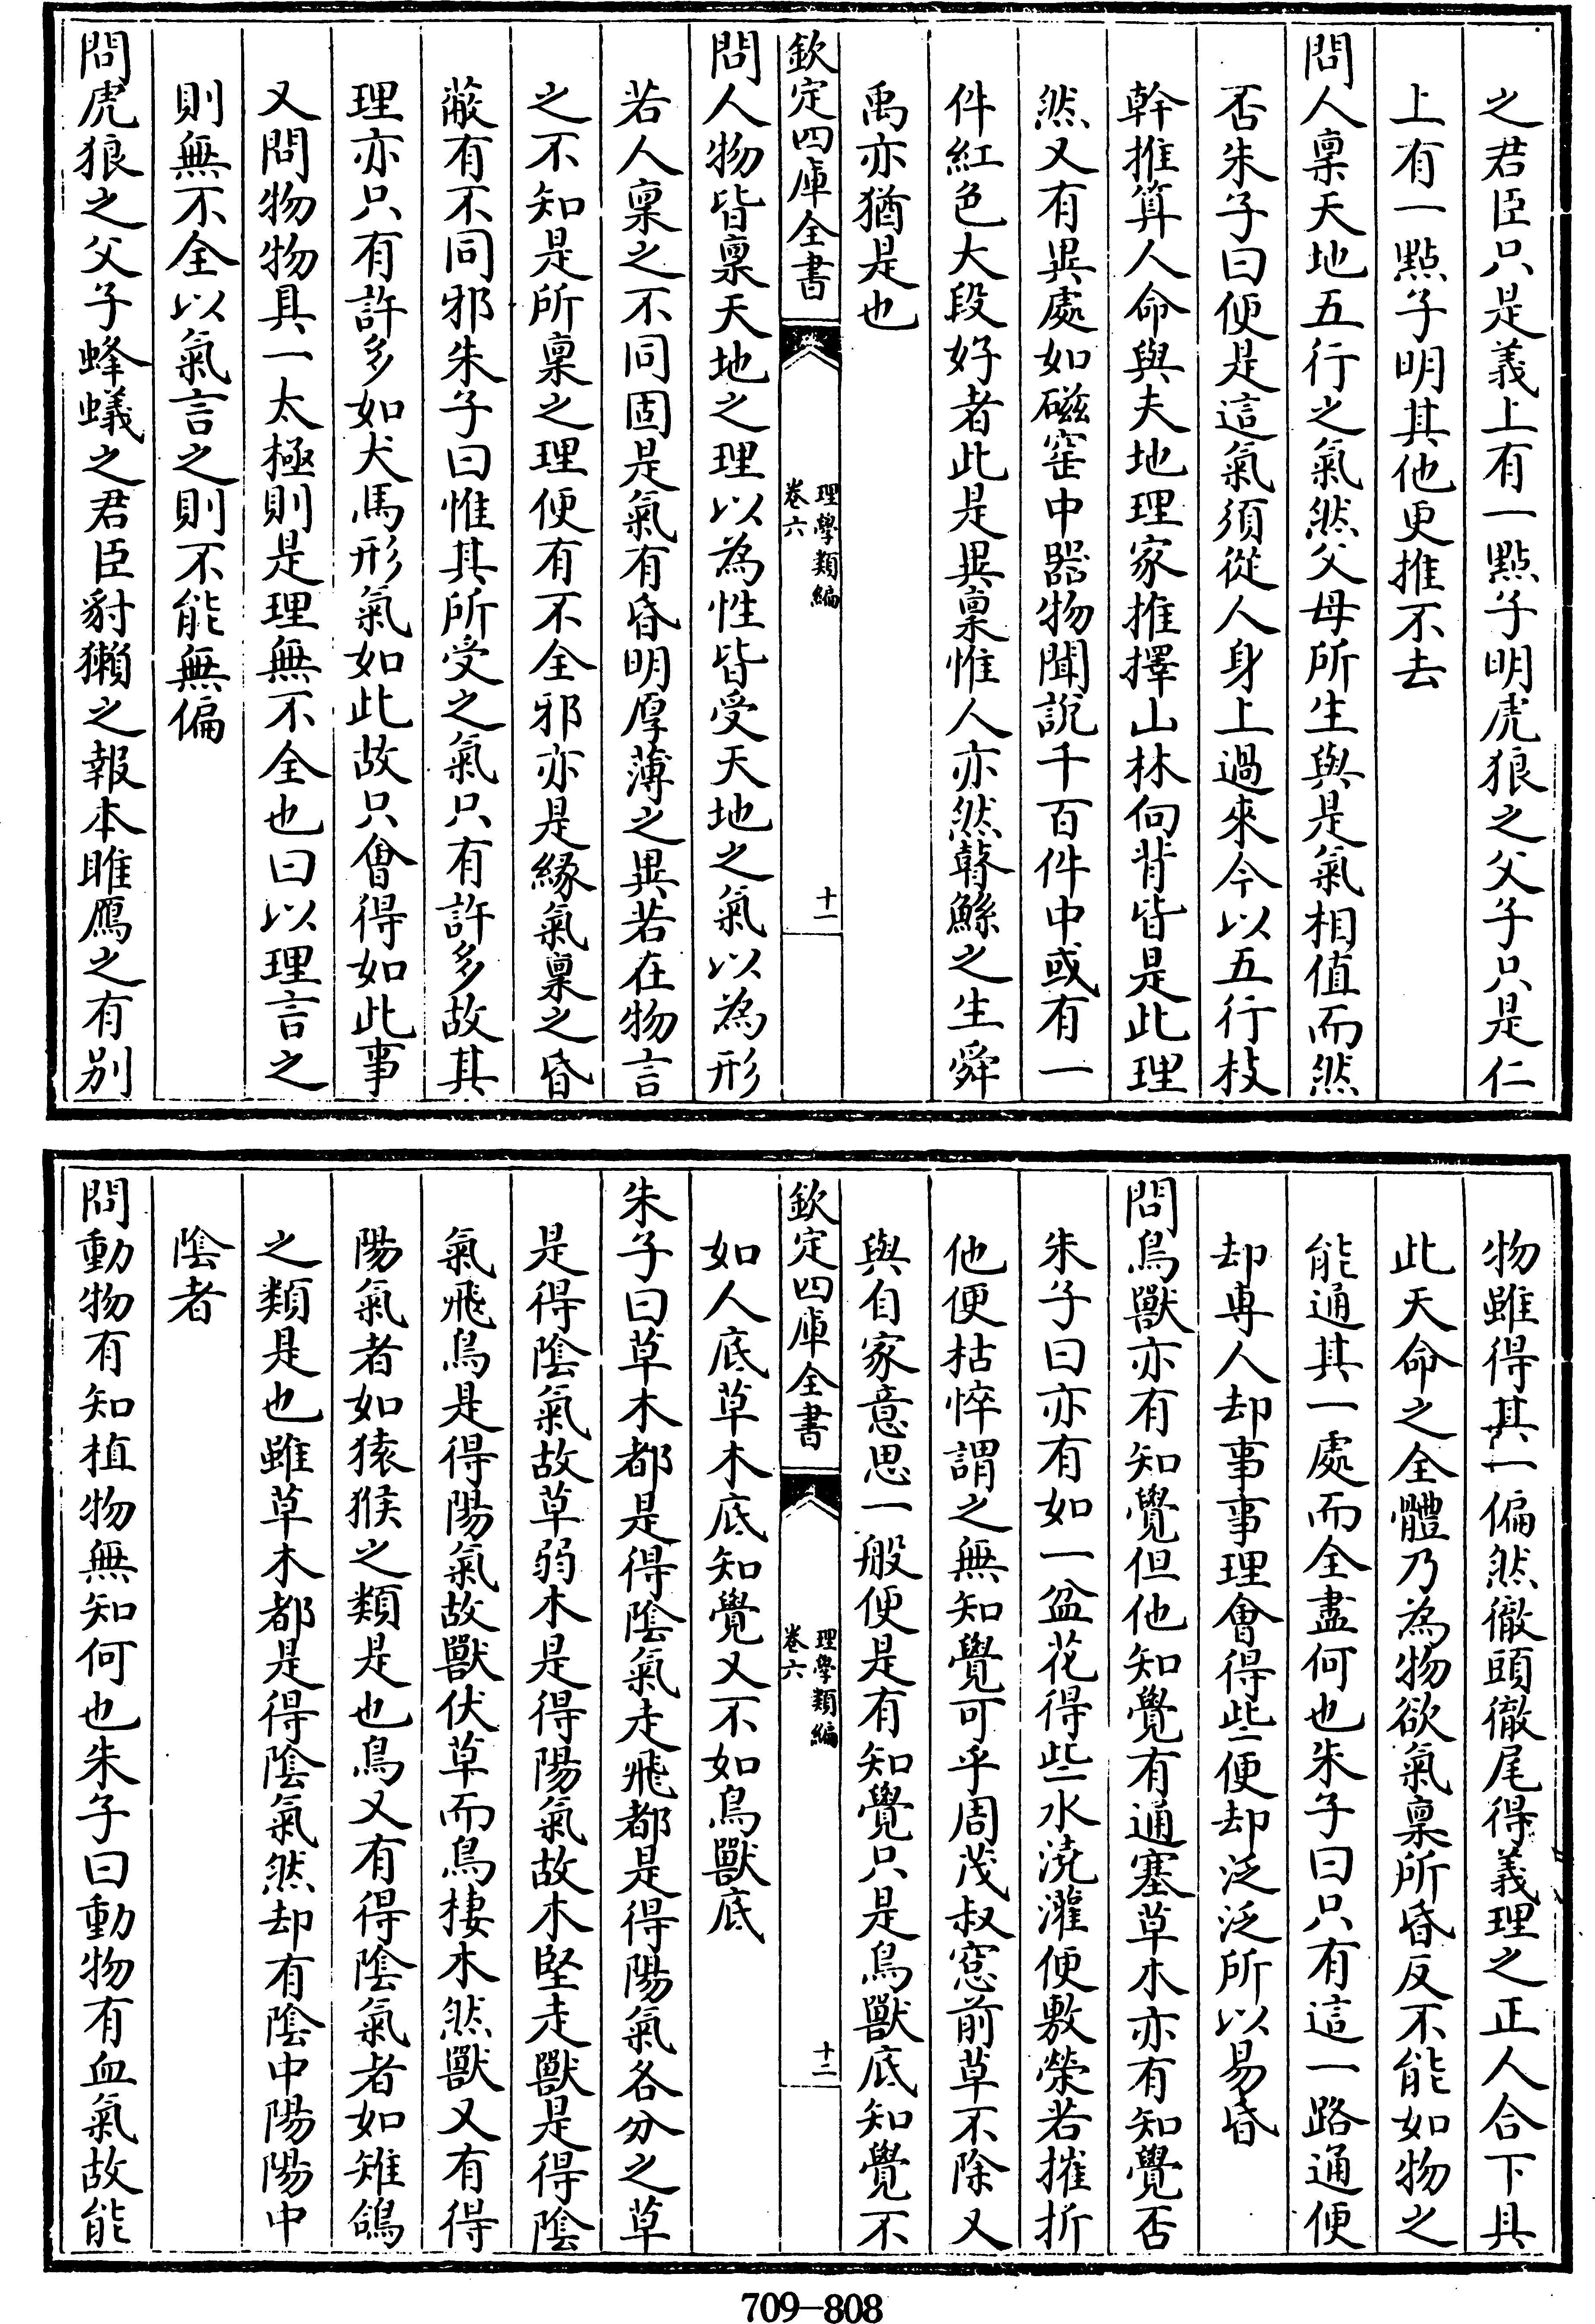 之君臣只是義上有一點子明虎狼之父子只是仁
上有一點子明其他更推不去
問人稟天地五行之氣然父母所生與是氣相值而然
否朱子曰便是這氣須從人身上過來今以五行枝
幹推算人命與夫地理家推擇山林向背皆是此理
然又有異處如磁窑中器物聞說千百件中或有一
件紅色大段好者此是異稟惟人亦然瞽鯀之生舜
禹亦猶是也
欽定四庫全書
理學類編
卷六
十一
問人物皆稟天地之理以為性皆受天地之氣以為形
若人稟之不同固是氣有昏明厚薄之異若在物言
之不知是所稟之理便有不全邪亦是緣氣稟之昏
蔽有不同邪朱子曰惟其所受之氣只有許多故其
理亦只有許多如犬馬形氣如此故只會得如此事
又問物物具一太極則是理無不全也曰以理言之
則無不全以氣言之則不能無偏
問虎狼之父子蜂蟻之君臣豺獺之報本雎鴈之有別
物雖得其一偏然徹頭徹尾得義理之正人合下具
此天命之全體乃為物欲氣稟所昏反不能如物之
能通其一處而全盡何也朱子曰只有這一路通便
却専人却事事理會得些便却泛泛所以易昏
問鳥獸亦有知覺但他知覺有通塞草木亦有知覺否
朱子曰亦有如一盆花得些水澆灌便敷榮若摧折
他便枯悴謂之無知覺可乎周茂叔窓前草不除又
與自家意思一般便是有知覺只是鳥獸底知覺不
欽定四庫全書
理學類編
卷六
十二
如人底草木底知覺又不如鳥獸底
朱子曰草木都是得陰氣走飛都是得陽氣各分之草
是得陰氣故草弱木是得陽氣故木堅走獸是得陰
氣飛鳥是得陽氣故獸伏草而鳥棲木然獸又有得
陽氣者如猿猴之類是也鳥又有得陰氣者如雉鴿
之類是也雖草木都是得陰氣然却有陰中陽陽中
陰者
問動物有知植物無知何也朱子曰動物有血氣故能
709-808